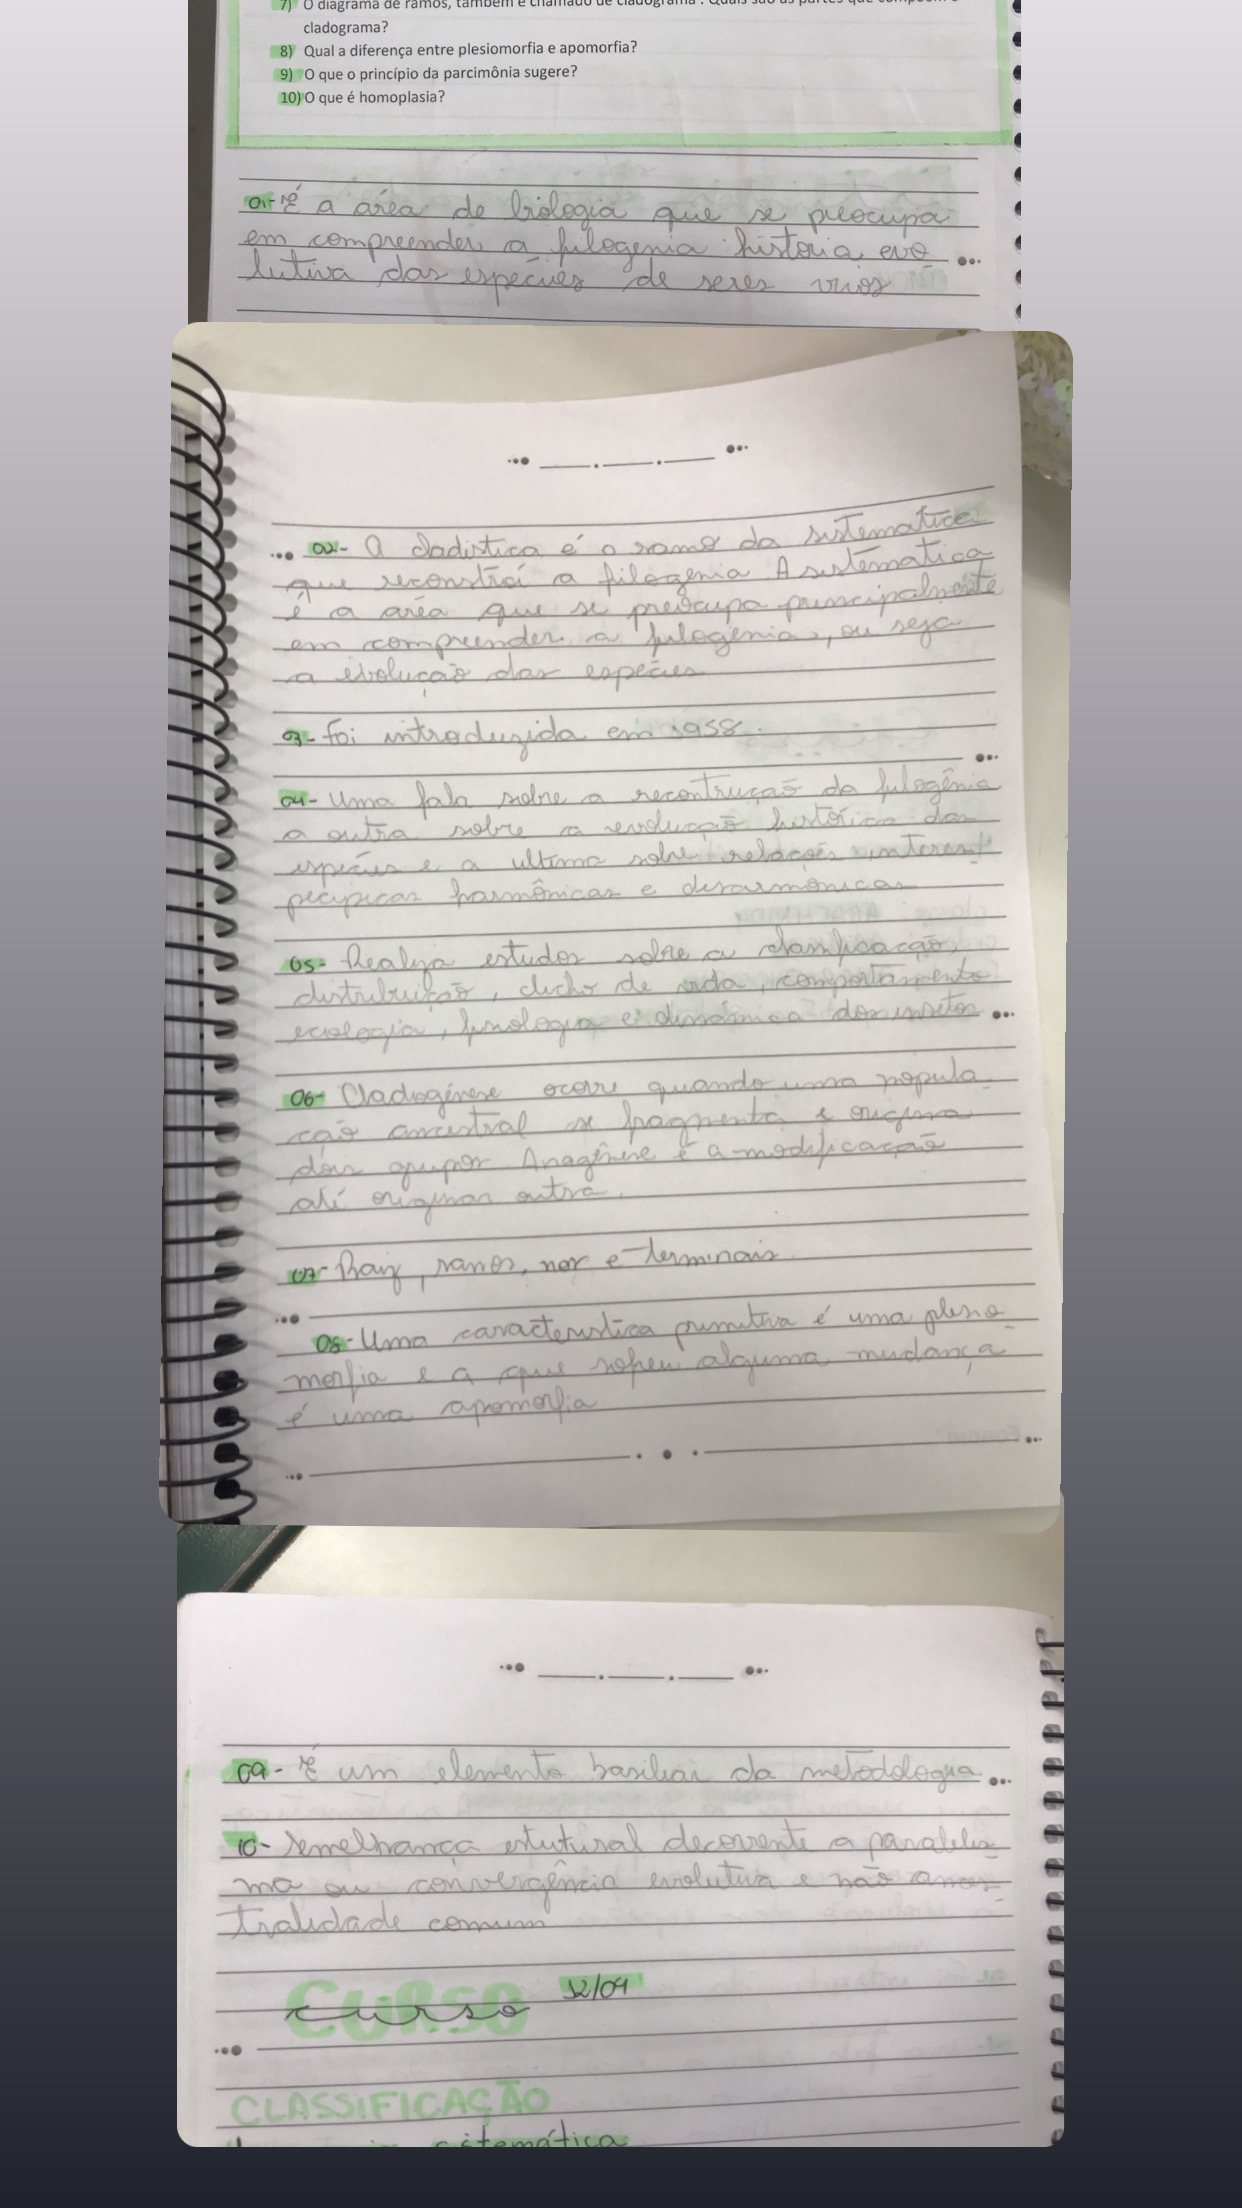 7) O diagrama de ramos, também é chamado de cladograma . Quais são as partes que compõem o
cladograma?
8) Qual a diferença entre plesiomorfia e apomorfia?
9) O que o princípio da parcimônia sugere?
10) O que é homoplasia?
01- É a área de biologia que se preocupa
em compreender a filogenia historia evo
lutiva das espécies de seres vivos
02- A cladistica é o ramo da sistematica
que reconstroi a filogenia A sistematica
é a area que se preocupa principalmente
em compreender a filogenia, ou seja
a evolução das especies
03- Foi introduzida em 1958.
04- Uma fala sobre a recontrução da filogênia
a outra sobre a evolução histórica das
espécies e a ultima sobre relações interes
pecificas harmônicas e desarmonicas
05- Realiza estudos sobre a classificação,
distribuição, ciclo de vida, comportamento
ecologia, fisiologia e dinâmica dos insetos
06- Cladogênese ocorre quando uma popula
ção ancestral se fragmenta e origina
dois grupos. Anagênese é a modificação
até originar outra.
07- Raiz, ramos, nos e terminais.
08- Uma caracteristica primitiva é uma plesio
morfia e a que sofreu alguma mudança
é uma apomorfia
09- É um elemento basiliar da metodologia
10- Semelhança estutural decorrente a paralelis
mo ou convergência evolutiva e não ances
tralidade comum
Curso 12/04
CLASSIFICAÇÃO
sistemática